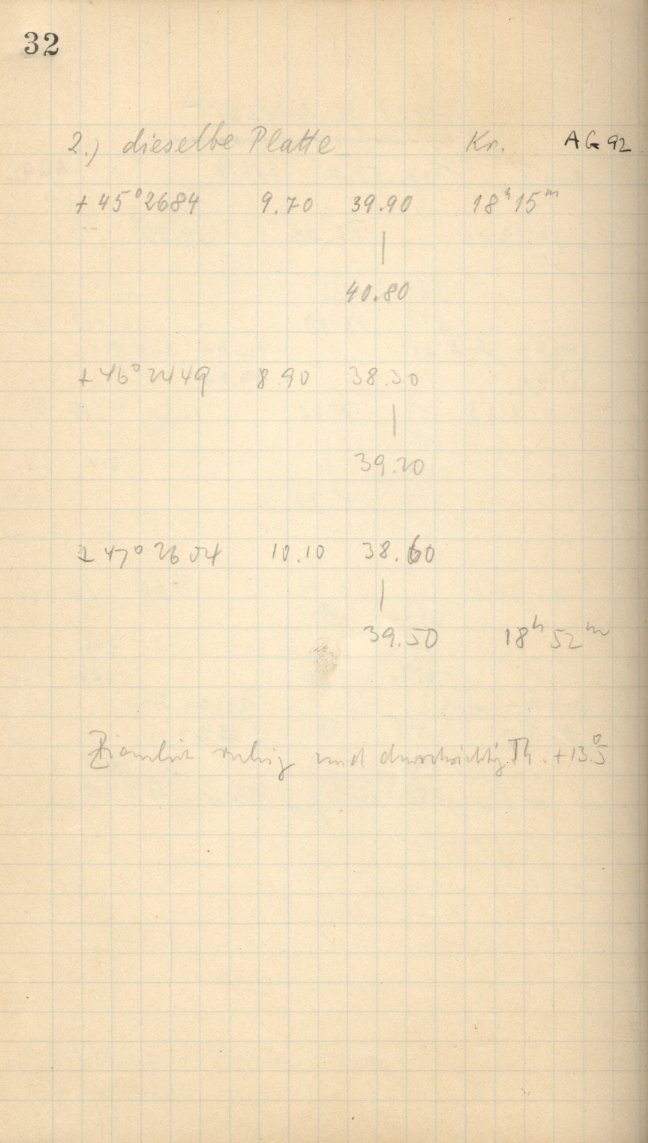 32
2.) dieselbe Platte Kr. AG 92
+45° 2684 9.70 39.90 18ʰ 15ᵐ
|
40.80
+46° 2449 8.90 38.30
|
39.20
+47° 2604 10.10 38.60
|
39.50 18ʰ 52ᵐ
Ziemlich ruhig und durchsichtig. Th. +13.°5